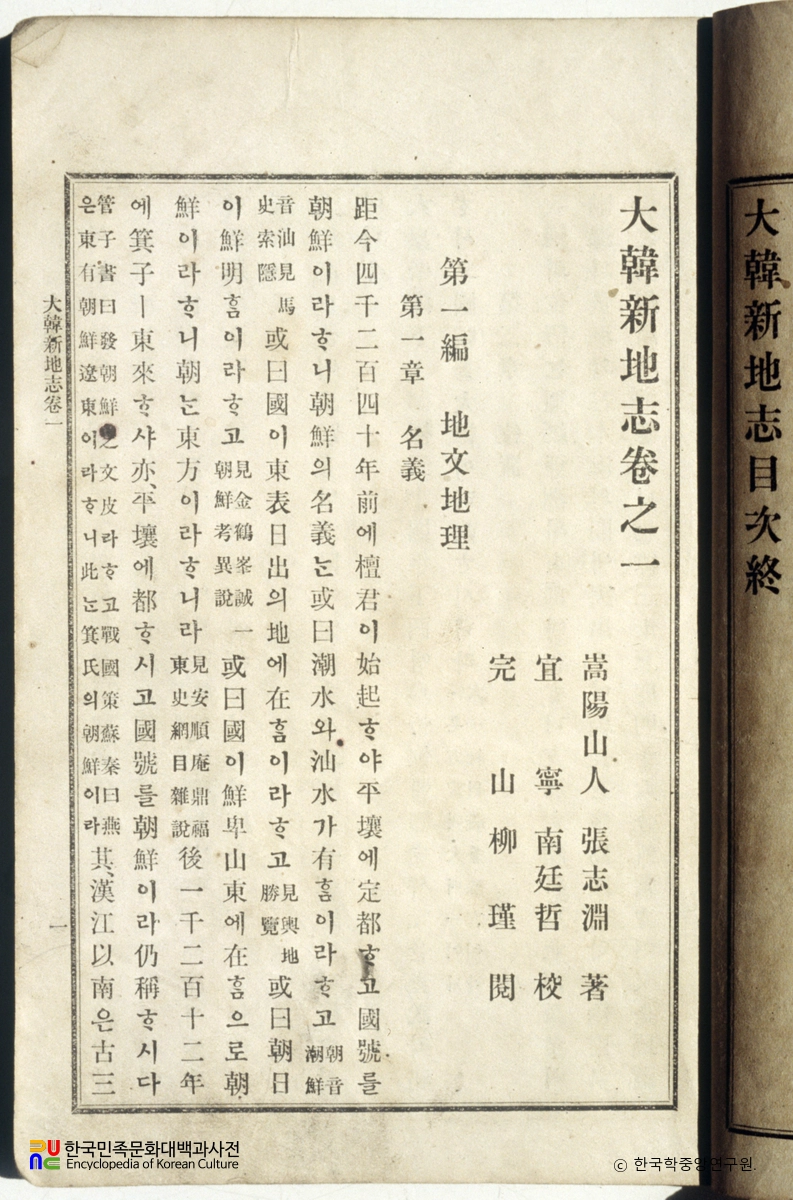 大韓新地志目次終
大韓新地志卷之一
嵩陽山人 張志淵 著
宜寧 南廷哲 校
完山 柳瑾 閱
第一編 地文地理
第一章 名義
距今四千二百四十年前에檀君이始起ᄒᆞ야平壤에定都ᄒᆞ고國號를
朝鮮이라ᄒᆞ니朝鮮의名義ᄂᆞᆫ或曰潮水와汕水가有ᄒᆞᆷ이라ᄒᆞ고朝音潮鮮
音汕見馬史索隱或曰國이東表日出의地에在ᄒᆞᆷ이라ᄒᆞ고見輿地勝覽或曰朝日
이鮮明ᄒᆞᆷ이라ᄒᆞ고見金鶴峯誠一朝鮮考異說或曰國이鮮卑山東에在ᄒᆞᆷ으로朝
鮮이라ᄒᆞ니朝ᄂᆞᆫ東方이라ᄒᆞ니라見安順庵鼎福東史綱目雜說後一千二百十二年
에箕子ㅣ東來ᄒᆞ샤亦平壤에都ᄒᆞ시고國號를朝鮮이라仍稱ᄒᆞ시다
管子書曰發朝鮮之文皮라ᄒᆞ고戰國策蘇秦曰燕은東有朝鮮遼東이라ᄒᆞ니此ᄂᆞᆫ箕氏의朝鮮이라其漢江以南은古三
大韓新地志卷一
一
한국민족문화대백과사전
Encyclopedia of Korean Culture
© 한국학중앙연구원.